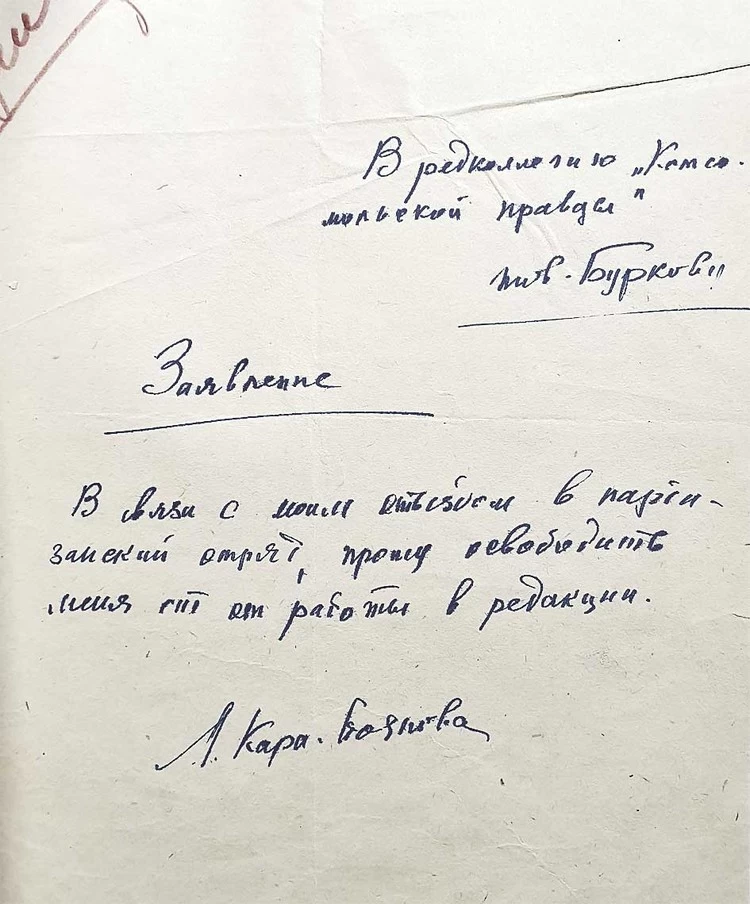 В редколлегию „Комсо-
мольской правды"
тов. Буркову
Заявление
В связи с моим отъездом в парти-
занский отряд, прошу освободить
меня от от работы в редакции.
Л. Кара-